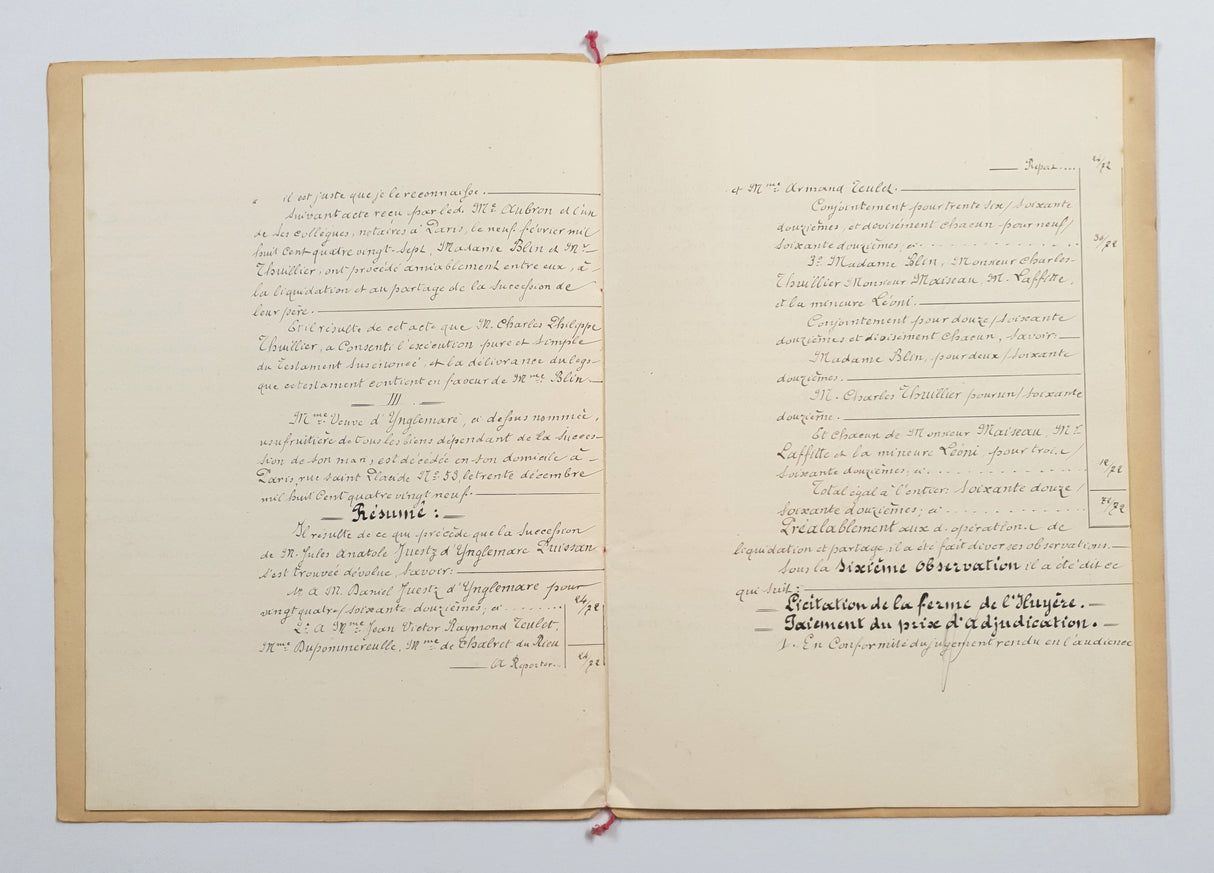 « il est juste que je le reconnaisse.
Suivant acte reçu par led. Me Aubron et l'un
de ses collègues, notaires à Paris, le neuf février mil
huit cent quatre vingt-sept, Madame Blin et Mr
Thuillier, ont procédé amiablement entre eux, à
la liquidation et au partage de la succession de
leur père.
Et il résulte de cet acte que M. Charles Philippe
Thuillier, a consenti l'exécution pure et simple
du testament susénoncé, et la délivrance du legs
que ce testament contient en faveur de Mme Blin
III
Mme Veuve d'Ynglemare, ci dessus nommée,
usufruitière de tous les biens dépendant de la succes-
sion de son mari, est décédée en son domicile à
Paris, rue Saint Claude No 53, le trente décembre
mil huit cent quatre vingt neuf.
Résumé :
Il résulte de ce qui précède que la succession
de M. Jules Anatole Juestz d'Ynglemare Quissan
s'est trouvée dévolue, savoir:
1o A M. Daniel Juestz d'Ynglemare pour
vingt quatre/soixante douzièmes, ci ....... 24/72
2o A Mme Jean Victor Raymond Teulet,
Mme Dupommereulle, Mme de Chalret du Rieu
A Reporter... 24/72
Report.... 24/72
et Mme Armand Teulet.
Conjointement pour trente six/soixante
douzièmes, et divisément chacun pour neuf/
soixante douzièmes, ci ............ 36/72
3o Madame Blin, Monsieur Charles
Thuillier Monsieur Maiseau, M. Laffitte,
et la mineure Léoni.
Conjointement pour douze/soixante
douzièmes et divisément chacun, savoir:
Madame Blin, pour deux/soixante
douzièmes.
M. Charles Thuillier pour un/soixante
douzième.
Et chacun de Monsieur Maiseau, Mr
Laffitte et la mineure Léoni, pour trois/
soixante douzièmes; ci ............ 12/72
Total égal à l'entier: soixante douze/
soixante douzièmes; ci ............ 72/72
Préalablement aux d. opérations de
liquidation et partage, il a été fait diverses observations.
Sous la Sixième Observation il a été dit ce
qui suit :
Licitation de la ferme de l'Huyère.
Paiement du prix d'adjudication.
1. En conformité du jugement rendu en l'audience